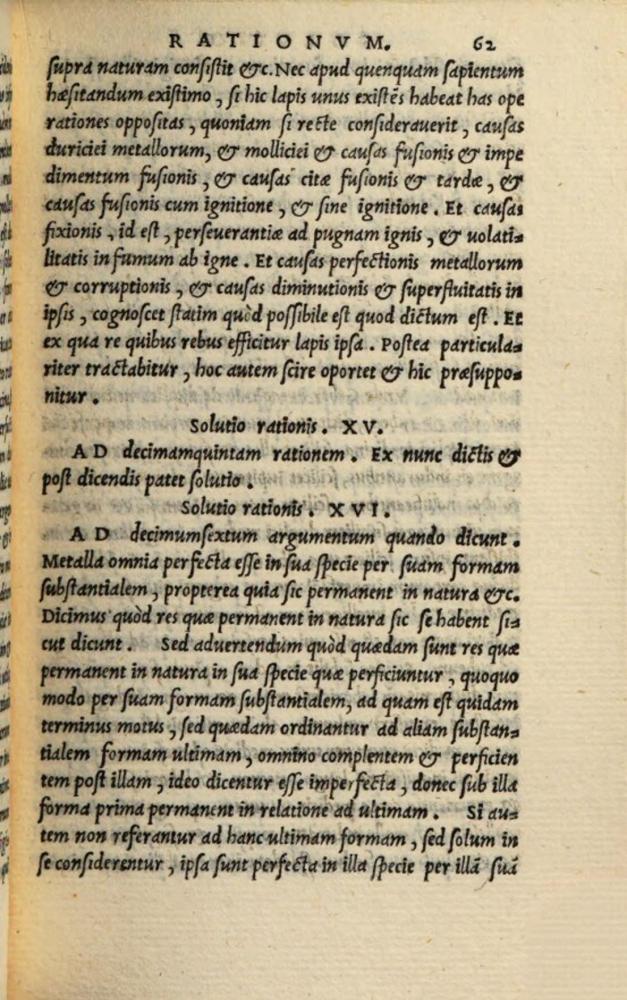 RATIONVM. 62
supra naturam consistit &c. Nec apud quenquam sapientum
hæsitandum existimo, si hic lapis unus existẽs habeat has ope
rationes oppositas, quoniam si recte consideraverit, causas
duriciei metallorum, & molliciei & causas fusionis & impe
dimentum fusionis, & causas citæ fusionis & tardæ, &
causas fusionis cum ignitione, & sine ignitione. Et causas
fixionis, id est, perseverantiæ ad pugnam ignis, & uolati-
litatis in fumum ab igne. Et causas perfectionis metallorum
& corruptionis, & causas diminutionis & superfluitatis in
ipsis, cognoscet statim quòd possibile est quod dictum est. Et
ex qua re quibus rebus efficitur lapis ipsa. Postea particula-
riter tractabitur, hoc autem scire oportet & hic præsuppo-
nitur.
Solutio rationis. XV.
AD decimamquintam rationem. Ex nunc dictis &
post dicendis patet solutio.
Solutio rationis. XVI.
AD decimumsextum argumentum quando dicunt.
Metalla omnia perfecta esse in sua specie per suam formam
substantialem, propterea quia sic permanent in natura &c.
Dicimus quòd res quæ permanent in natura sic se habent si-
cut dicunt. Sed advertendum quòd quædam sunt res quæ
permanent in natura in sua specie quæ perficiuntur, quoquo
modo per suam formam substantialem, ad quam est quidam
terminus motus, sed quædam ordinantur ad aliam substan-
tialem formam ultimam, omnino complentem & perficien
tem post illam, ideo dicentur esse imperfecta, donec sub illa
forma prima permanent in relatione ad ultimam. Si au-
tem non referantur ad hanc ultimam formam, sed solum in
se considerentur, ipsa sunt perfecta in illa specie per illã suã